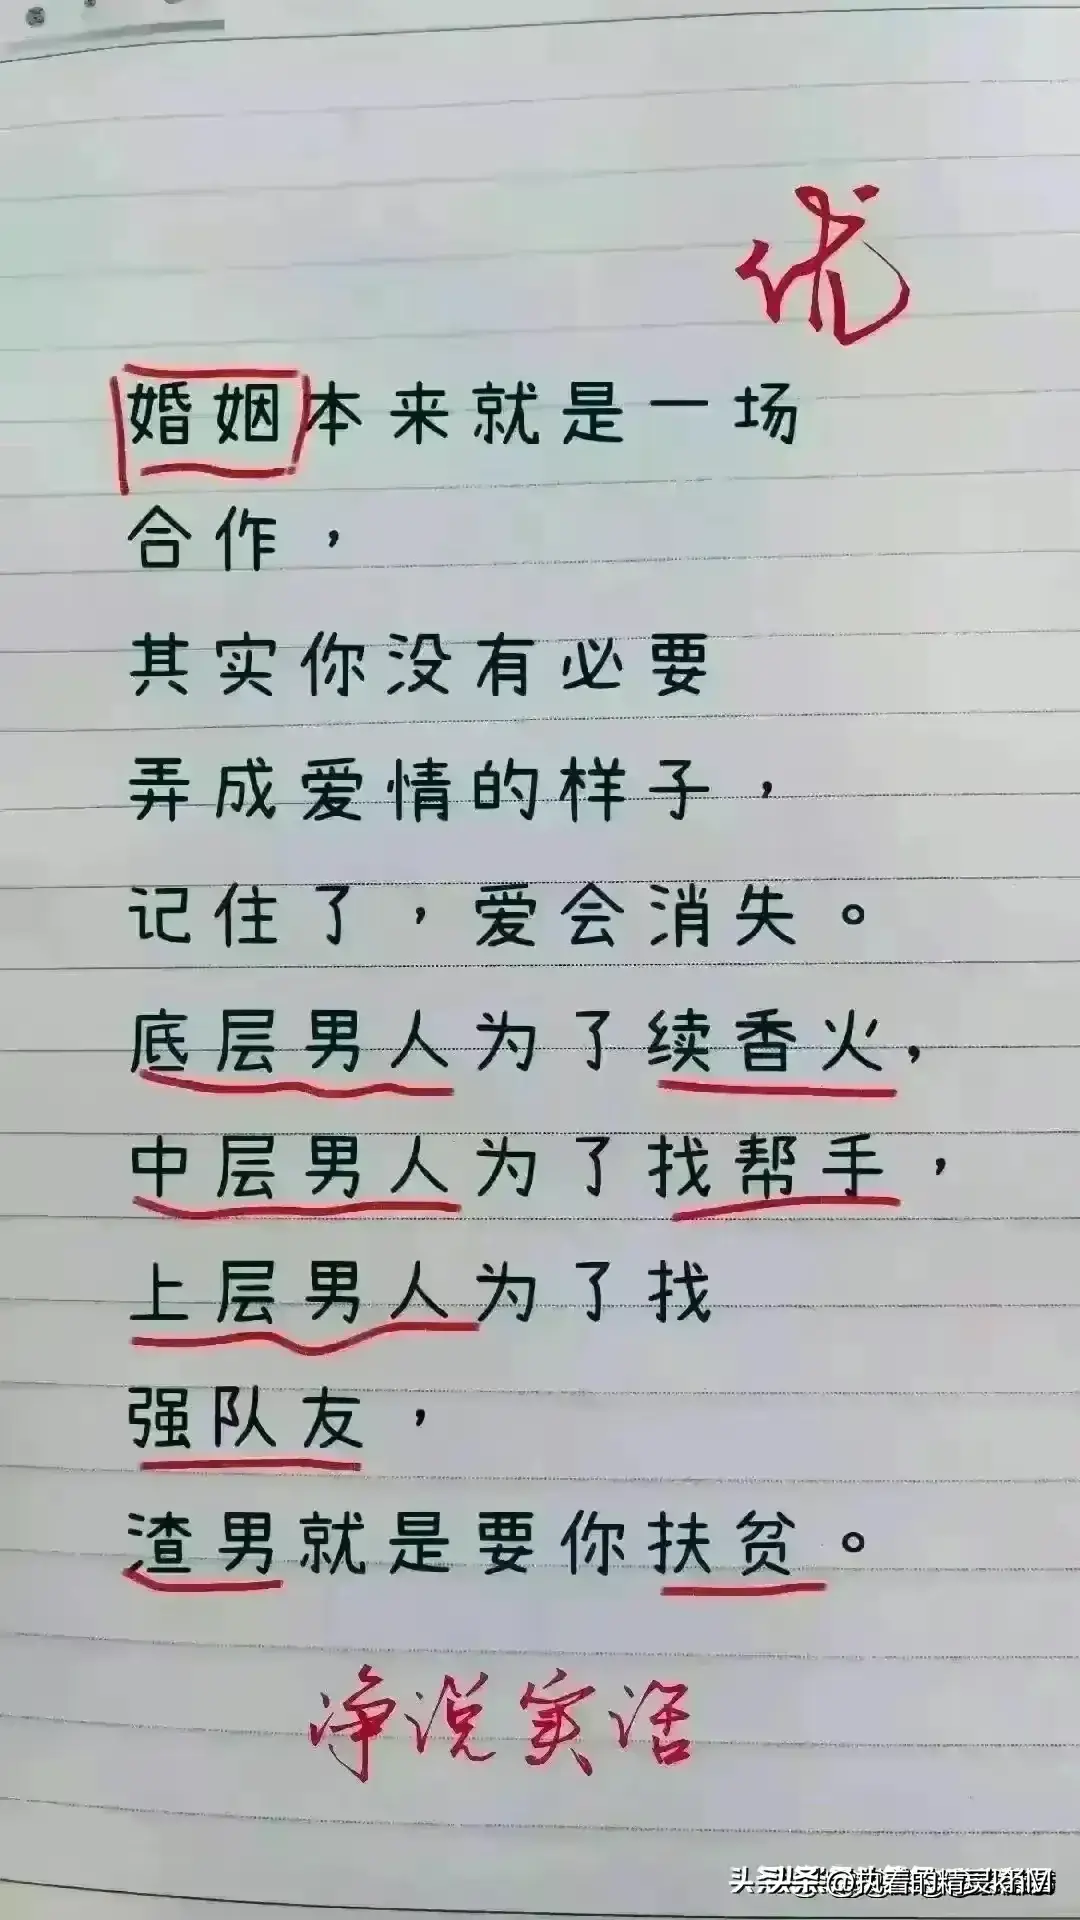 优
婚姻本来就是一场
合作，
其实你没有必要
弄成爱情的样子，
记住了，爱会消失。
底层男人为了续香火，
中层男人为了找帮手，
上层男人为了找
强队友，
渣男就是要你扶贫。
净说实话
头条 @执着的精灵